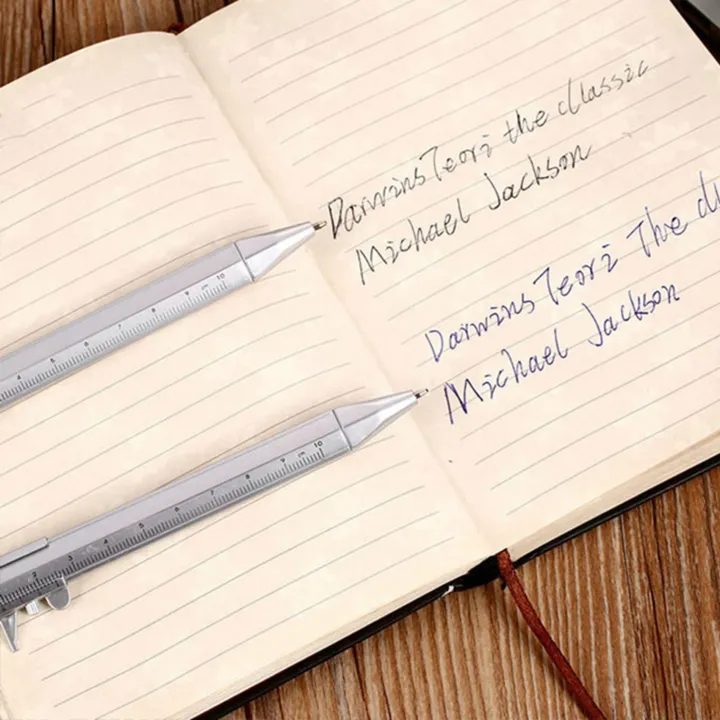 Darwins Teori the classic
Michael Jackson
Darwins Teori The cl
Michael Jackson
4 5 6 7 8 9 cm 10
2 3 4 5 6 7 8 9 cm 10